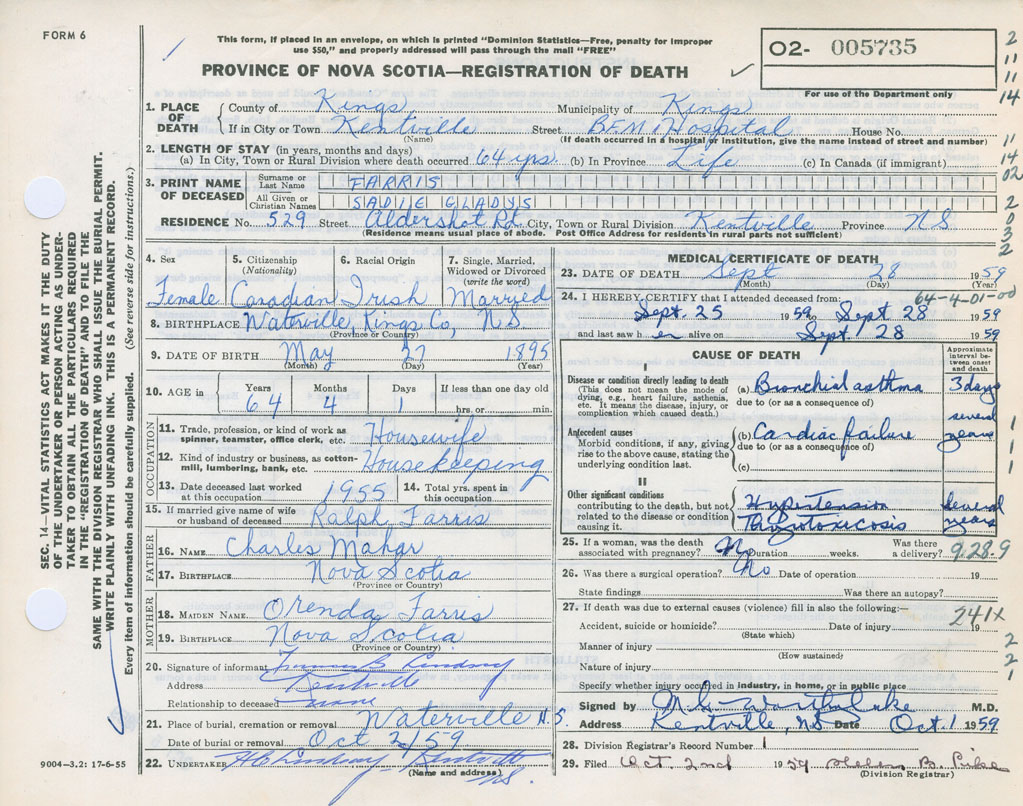 FORM 6
This form, if placed in an envelope, on which is printed "Dominion Statistics—Free, penalty for improper
use $50," and properly addressed will pass through the mail "FREE"
PROVINCE OF NOVA SCOTIA—REGISTRATION OF DEATH
O2- 005735
For use of the Department only
2
11
11
14
11
14
02
2
0
3
2
SEC. 14—VITAL STATISTICS ACT MAKES IT THE DUTY
OF THE UNDERTAKER OR PERSON ACTING AS UNDER-
TAKER TO OBTAIN ALL THE PARTICULARS REQUIRED
IN THE "REGISTRATION OF DEATH" AND TO FILE THE
SAME WITH THE DIVISION REGISTRAR WHO SHALL ISSUE THE BURIAL PERMIT.
WRITE PLAINLY WITH UNFADING INK. THIS IS A PERMANENT RECORD.
Every item of information should be carefully supplied. (See reverse side for instructions.)
1. PLACE OF DEATH
County of Kings Municipality of Kings
If in City or Town Kentville Street BFM Hospital House No.
(Name) (If death occurred in a hospital or institution, give the name instead of street and number)
2. LENGTH OF STAY (in years, months and days)
(a) In City, Town or Rural Division where death occurred 64 yrs. (b) In Province Life (c) In Canada (if immigrant)
3. PRINT NAME OF DECEASED
Surname or Last Name FARRIS
All Given or Christian Names SADIE GLADYS
RESIDENCE No. 529 Street Aldershot Rd. City, Town or Rural Division Kentville Province N.S.
(Residence means usual place of abode. Post Office Address for residents in rural parts not sufficient)
4. Sex 5. Citizenship (Nationality) 6. Racial Origin 7. Single, Married, Widowed or Divorced (write the word)
Female Canadian Irish Married
8. BIRTHPLACE Waterville, Kings Co, N S
(Province or Country)
9. DATE OF BIRTH May 27 1895
(Month) (Day) (Year)
10. AGE in Years Months Days If less than one day old
64 4 1 hrs. or min.
OCCUPATION
11. Trade, profession, or kind of work as spinner, teamster, office clerk, etc. Housewife
12. Kind of industry or business, as cotton-mill, lumbering, bank, etc. Housekeeping
13. Date deceased last worked at this occupation 1955 14. Total yrs. spent in this occupation
15. If married give name of wife or husband of deceased Ralph Farris
FATHER
16. NAME Charles Mahar
17. BIRTHPLACE Nova Scotia
(Province or Country)
MOTHER
18. MAIDEN NAME Orenda Farris
19. BIRTHPLACE Nova Scotia
(Province or Country)
20. Signature of informant
Address Kentville
Relationship to deceased none
21. Place of burial, cremation or removal Waterville N.S.
Date of burial or removal Oct 2/59
22. UNDERTAKER H B Lindsay Kentville
(Name and address) N.S.
9004—3.2: 17-6-55
MEDICAL CERTIFICATE OF DEATH
23. DATE OF DEATH Sept 28 1959
(Month) (Day)
64-4-01-00
24. I HEREBY CERTIFY that I attended deceased from:
Sept. 25 1959 to Sept 28 1959
and last saw h er alive on Sept. 28 1959
CAUSE OF DEATH
Approximate interval between onset and death
I
Disease or condition directly leading to death
(This does not mean the mode of dying, e.g., heart failure, asthenia, etc. It means the disease, injury, or complication which caused death.)
(a) Bronchial asthma 3 days
due to (or as a consequence of)
Antecedent causes
Morbid conditions, if any, giving rise to the above cause, stating the underlying condition last.
(b) Cardiac failure several years
due to (or as a consequence of)
(c)
1
1
1
II
Other significant conditions
contributing to the death, but not related to the disease or condition causing it.
Hypertension several
Thyrotoxicosis years
25. If a woman, was the death associated with pregnancy? No Duration weeks. Was there a delivery?
9.28.9
26. Was there a surgical operation? No Date of operation 19
State findings Was there an autopsy?
27. If death was due to external causes (violence) fill in also the following:—
241X
Accident, suicide or homicide? Date of injury 19
(State which)
Manner of injury
(How sustained)
Nature of injury
2
2
1
Specify whether injury occurred in industry, in home, or in public place
Signed by M.D.
Address Kentville, N.S. Date Oct. 1 1959
28. Division Registrar's Record Number 1
29. Filed Oct. 2nd 1959 Helen B. Pike
(Division Registrar)